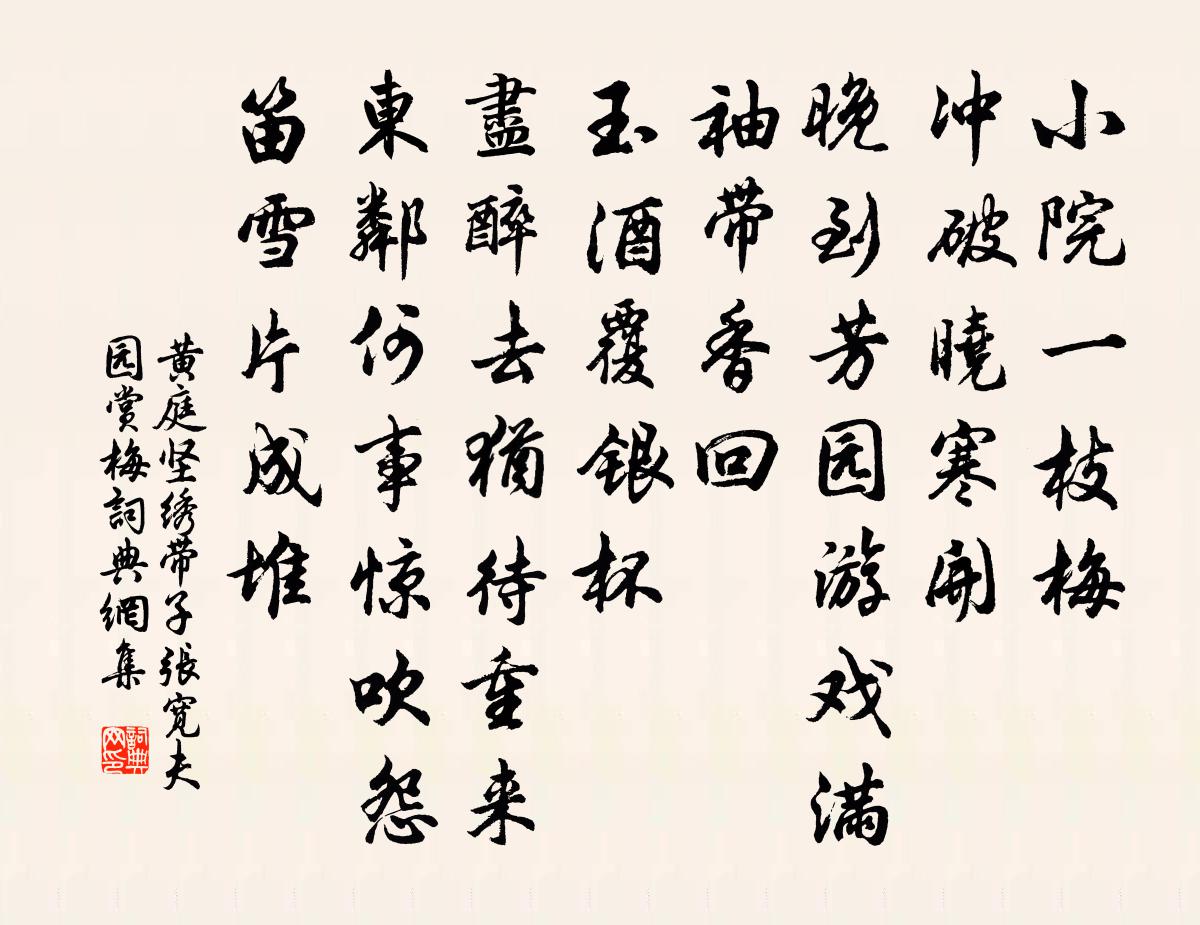 小院一枝梅
冲破曉寒開
晚到芳园游戏满
袖带香回
玉酒覆銀杯
盡醉去猶待重来
東鄰何事惊吹怨
笛雪片成堆
黄庭坚绣带子張寬夫
园赏梅詞典網集
詞典网印